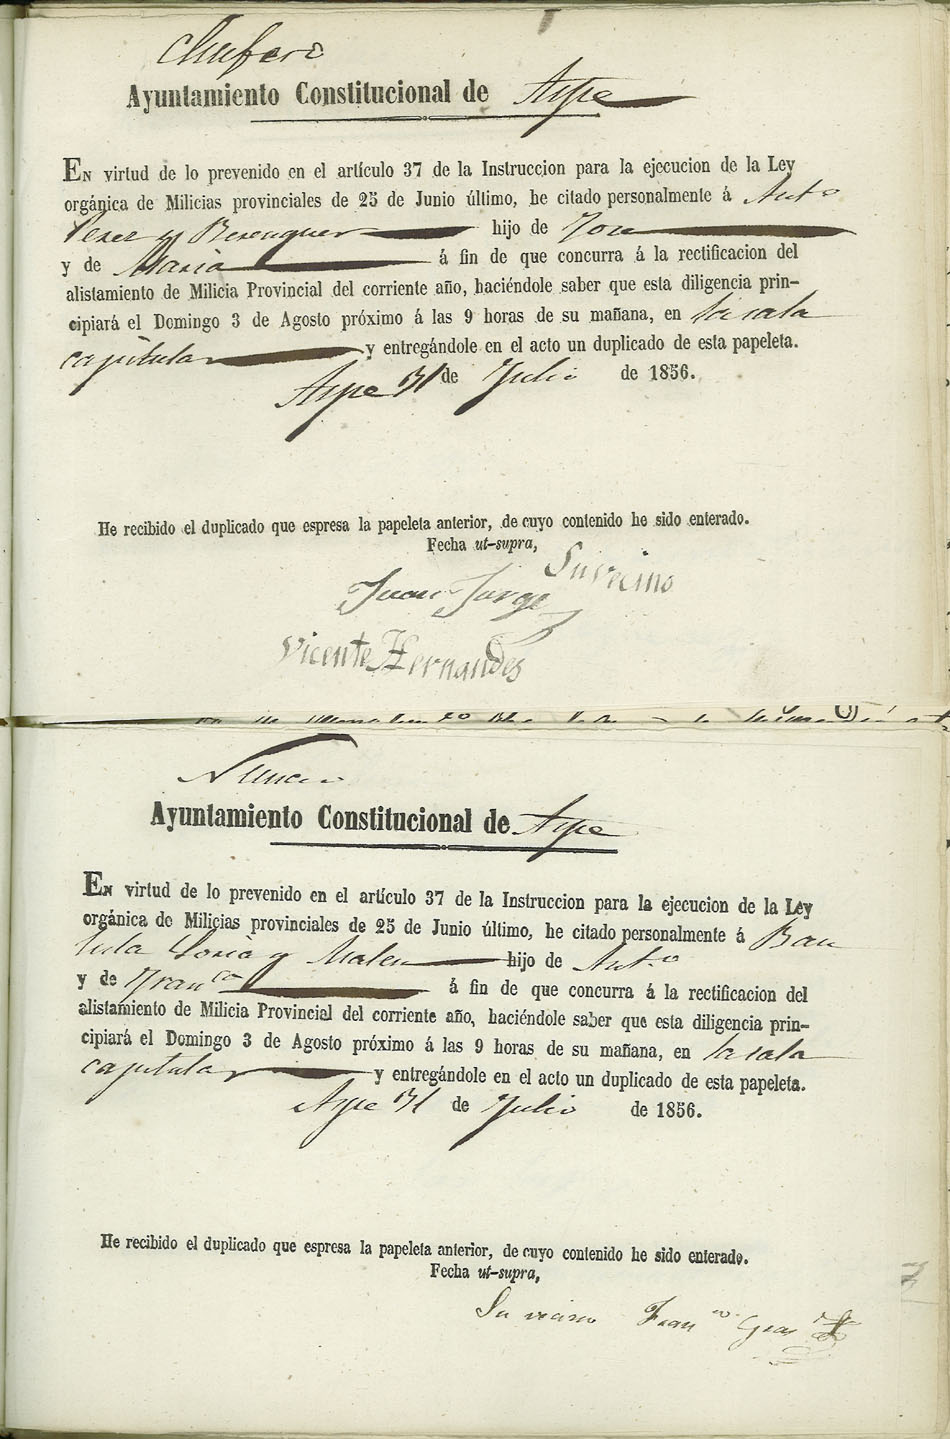 Ayuntamiento Constitucional de Aspe
EN virtud de lo prevenido en el artículo 37 de la Instruccion para la ejecucion de la Ley
orgánica de Milicias provinciales de 25 de Junio último, he citado personalmente á Antº
Perez y Berenguer hijo de Jose
y de Maria á fin de que concurra á la rectificacion del
alistamiento de Milicia Provincial del corriente año, haciéndole saber que esta diligencia prin-
cipiará el Domingo 3 de Agosto próximo á las 9 horas de su mañana, en la sala
capitular y entregándole en el acto un duplicado de esta papeleta.
Aspe 31 de Julio de 1856.
He recibido el duplicado que espresa la papeleta anterior, de cuyo contenido he sido enterado.
Fecha ut-supra,
Su vecino
Juan Jorge
Vicente Hernandes
Ayuntamiento Constitucional de Aspe
EN virtud de lo prevenido en el artículo 37 de la Instruccion para la ejecucion de la Ley
orgánica de Milicias provinciales de 25 de Junio último, he citado personalmente á Bau
tista Soria y hijo de Antº
y de Franca á fin de que concurra á la rectificacion del
alistamiento de Milicia Provincial del corriente año, haciéndole saber que esta diligencia prin-
cipiará el Domingo 3 de Agosto próximo á las 9 horas de su mañana, en la sala
capitular y entregándole en el acto un duplicado de esta papeleta.
Aspe 31 de Julio de 1856.
He recibido el duplicado que espresa la papeleta anterior, de cuyo contenido he sido enterado.
Fecha ut-supra,
Su vecino Franco